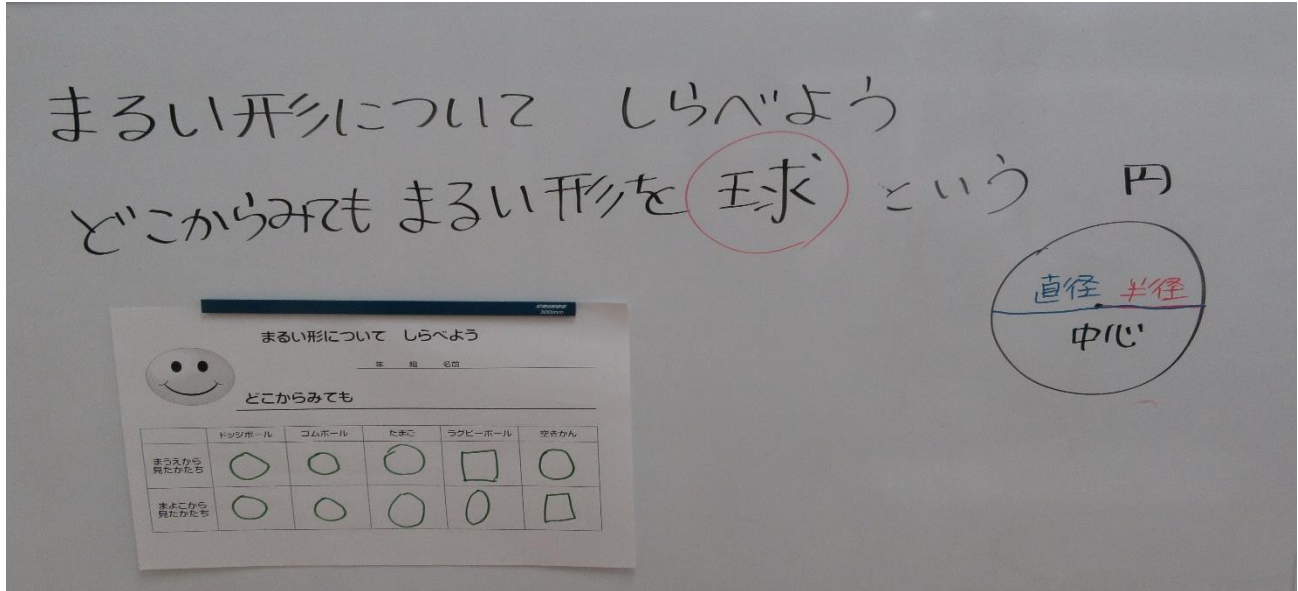 まるい形について しらべよう
どこからみても まるい形を 球 という
円
直径 半径
中心
300mm
まるい形について しらべよう
年 組 名前
どこからみても
ドッジボール ゴムボール たまご ラグビーボール 空きかん
まうえから
見たかたち
まよこから
見たかたち